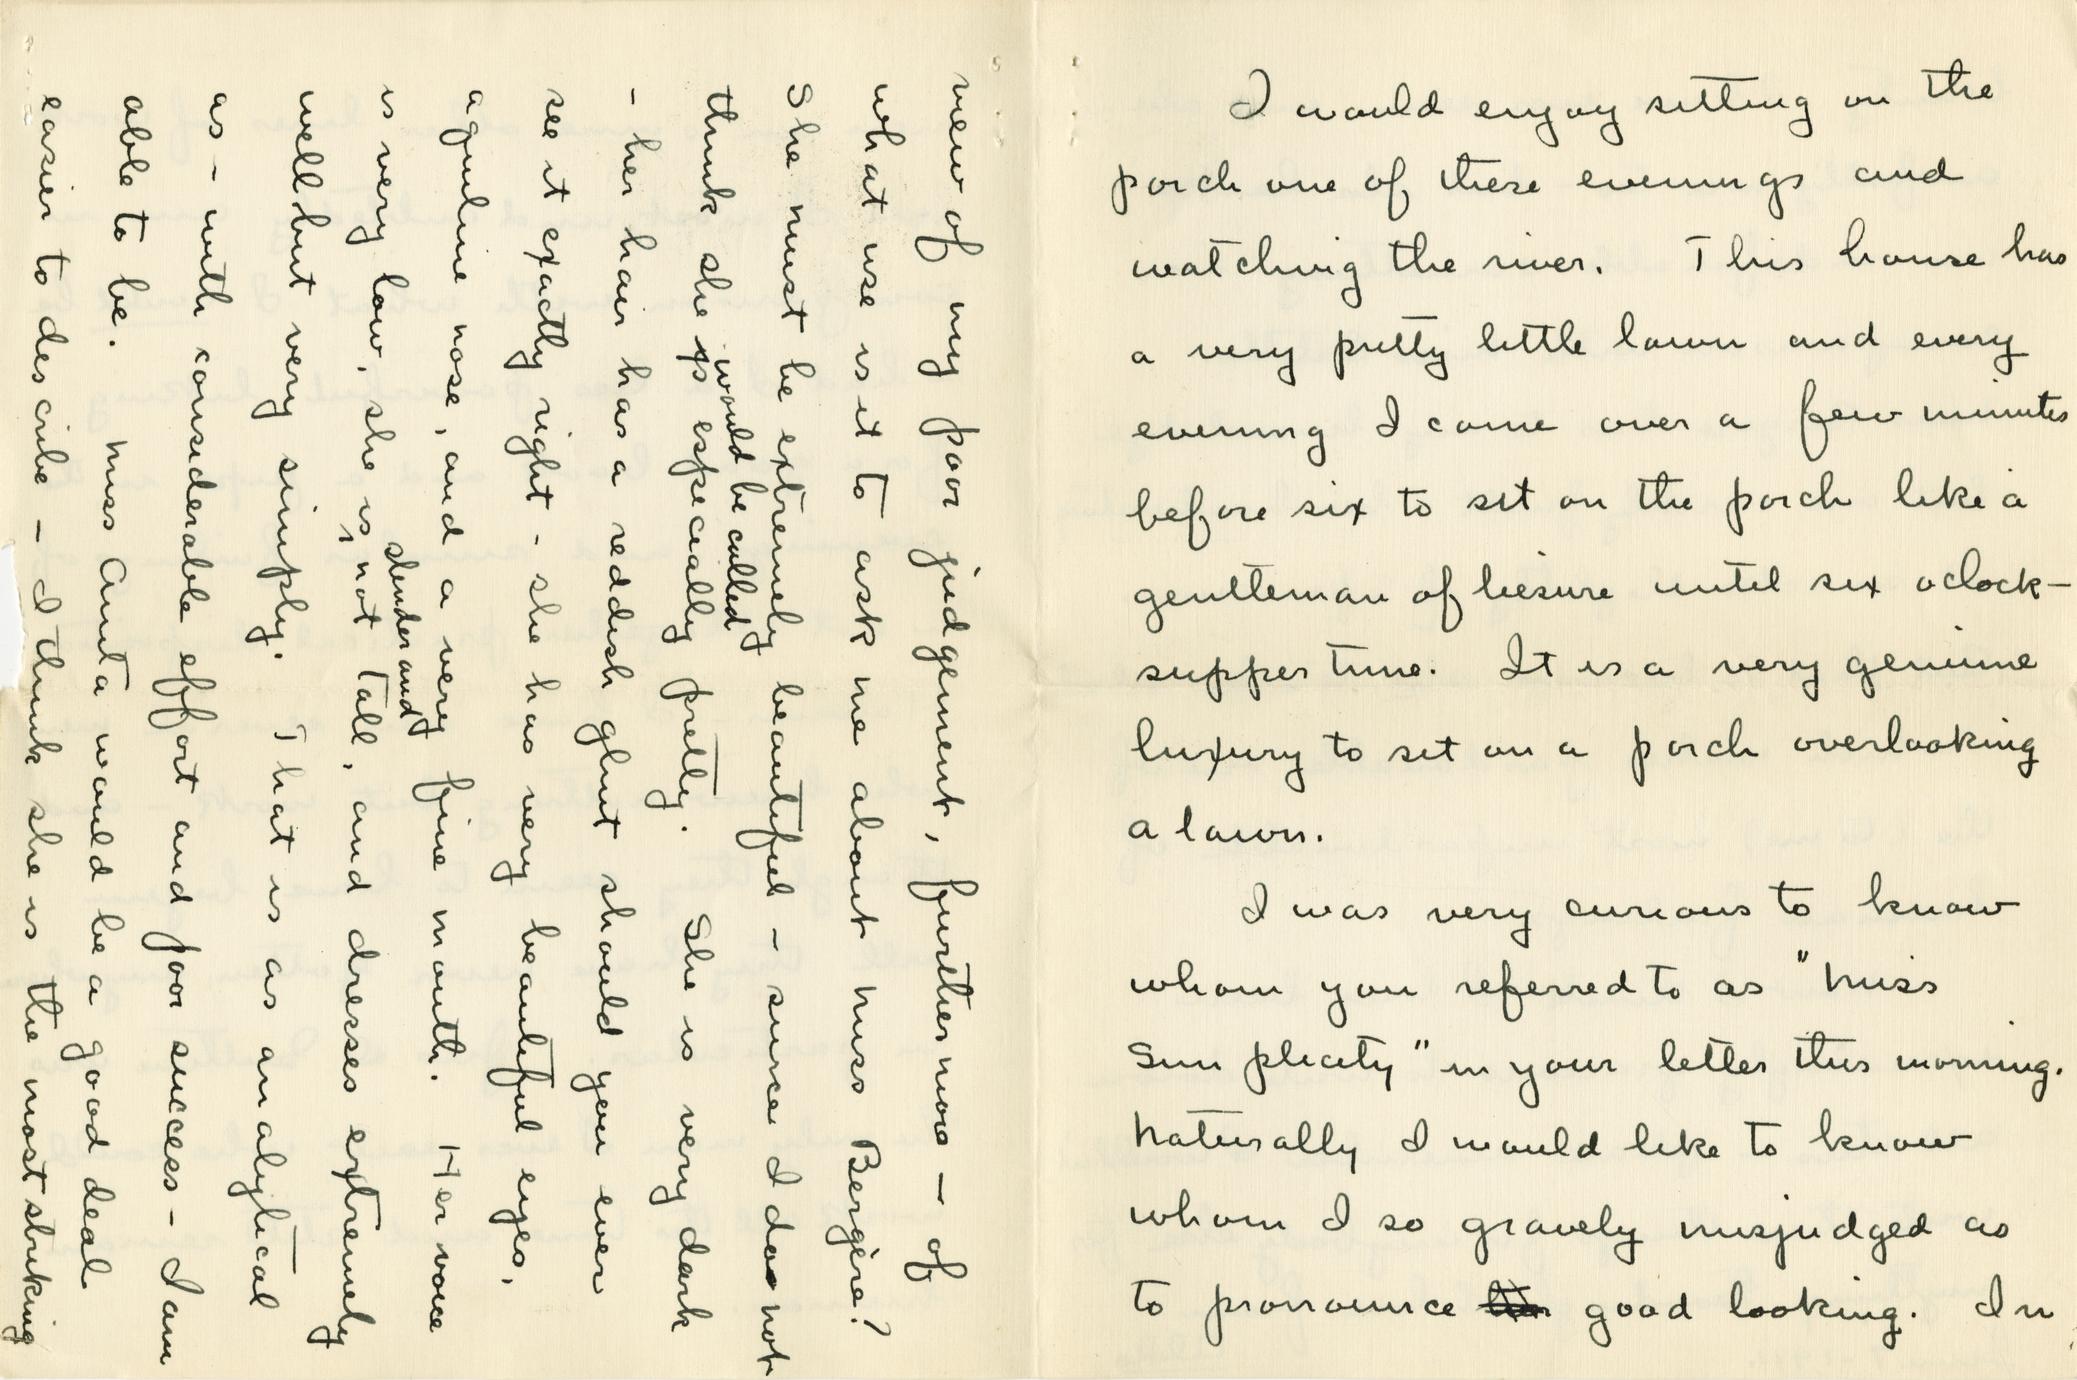 I would enjoy sitting on the
porch one of these evenings and
watching the river. This house has
a very pretty little lawn and every
evening I come over a few minutes
before six to sit on the porch like a
gentleman of liesure until six oclock—
supper time. It is a very genuine
luxury to sit on a porch overlooking
a lawn.
I was very curious to know
whom you referred to as "Miss
Simplicity" in your letter this morning.
Naturally I would like to know
whom I so gravely misjudged as
to pronounce good looking. In
view of my poor judgement, furthermore — of
what use is it to ask me about Miss Bergère?
She must be extremely beautiful – since I do not
think she is would be called especially pretty. She is very dark
– her hair has a reddish glint should you ever
see it exactly right – she has very beautiful eyes,
a aquiline nose, and a very fine mouth. Her voice
is very low, she is, slender and not tall, and dresses extremely
well but very simply. That is as analytical
as – with considerable effort and poor success – I am
able to be. Miss Anita would be a good deal
easier to describe – I think she is the most striking